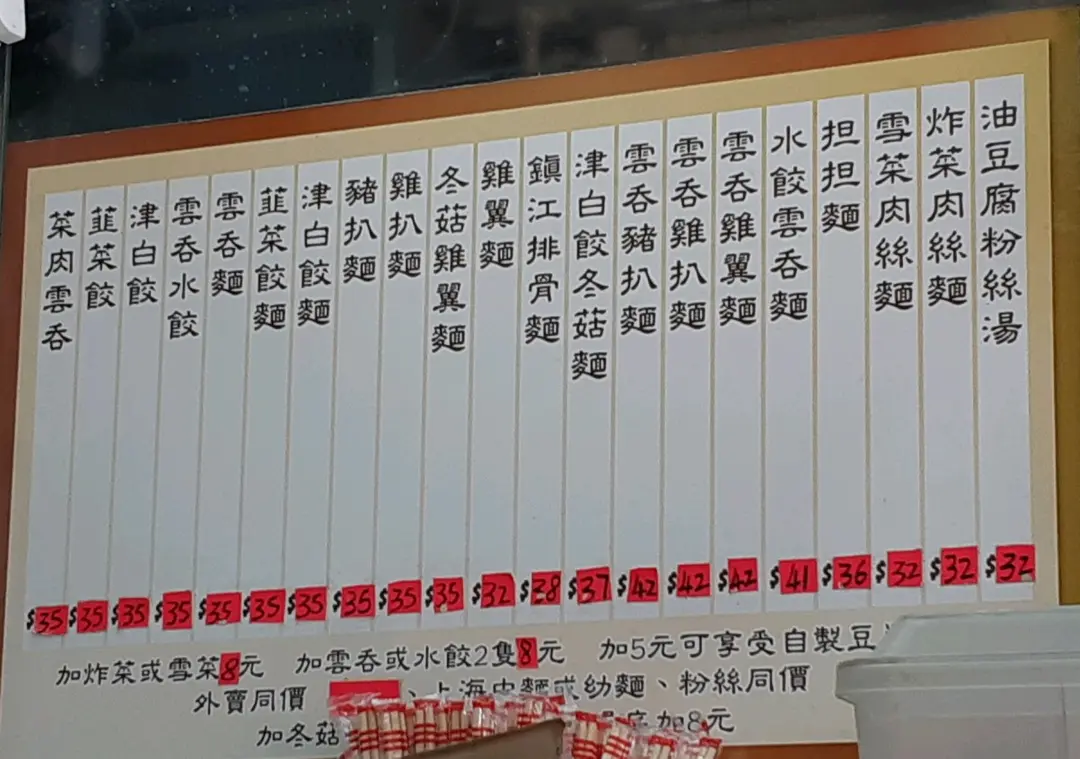 油豆腐粉絲湯 $32
炸菜肉絲麵 $32
雪菜肉絲麵 $32
担担麵 $36
水餃雲吞麵 $41
雲吞雞翼麵 $42
雲吞雞扒麵 $42
雲吞豬扒麵 $42
津白餃冬菇麵 $37
鎮江排骨麵 $38
雞翼麵 $32
冬菇雞翼麵 $35
雞扒麵 $35
豬扒麵 $35
津白餃麵 $35
韮菜餃麵 $35
雲吞麵 $35
雲吞水餃 $35
津白餃 $35
韮菜餃 $35
菜肉雲吞 $35
加炸菜或雪菜8元 加雲吞或水餃2隻8元 加5元可享受自製豆
外賣同價 、上海皮麵或幼麵、粉絲同價
加冬菇 加8元